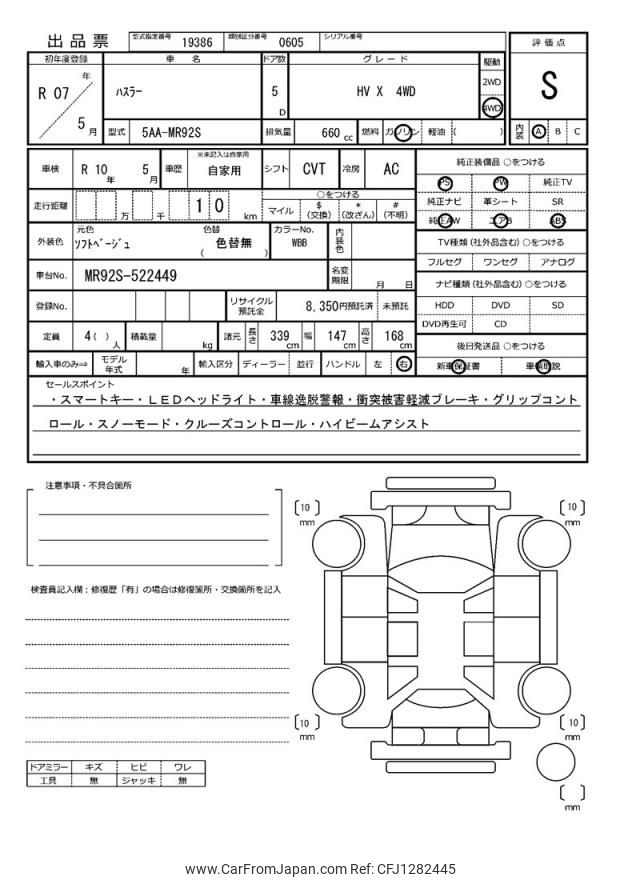 出品票 型式指定番号 19386 類別区分番号 0605 シリアル番号
評価点
S
内装 A B C
初年度登録 車名 ドア数 グレード 駆動
R 07 年 5 月 ハスラー 5 D HV X 4WD 2WD 4WD
型式 5AA-MR92S 排気量 660 cc 燃料 ガソリン 軽油 ( )
車検 R 10 年 5 月 車歴 ※未記入は自家用 自家用 シフト CVT 冷房 AC
走行距離 万 千 1 0 km ○をつける マイル $ (交換) * (改ざん) # (不明)
外装色 元色 ソフトベージュ 色替 ( 色替無 ) カラーNo. WBB 内装色
車台No. MR92S-522449 名変期限 月 日
登録No. リサイクル預託金 8,350円預託済 未預託
定員 4( ) 人 積載量 kg 諸元 長さ 339 cm 幅 147 cm 高さ 168 cm
輸入車のみ⇒ モデル年式 年 輸入区分 ディーラー 並行 ハンドル 左 右
純正装備品 ○をつける
PS PW 純正TV
純正ナビ 革シート SR
純正AW エアB ABS
TV種類 (社外品含む) ○をつける
フルセグ ワンセグ アナログ
ナビ種類 (社外品含む) ○をつける
HDD DVD SD
DVD再生可 CD
後日発送品 ○をつける
新車保証書 車輌取説
セールスポイント
・スマートキー・LEDヘッドライト・車線逸脱警報・衝突被害軽減ブレーキ・グリップコント
ロール・スノーモード・クルーズコントロール・ハイビームアシスト
注意事項・不具合箇所
検査員記入欄：修復歴「有」の場合は修復箇所・交換箇所を記入
ドアミラー キズ ヒビ ワレ
工具 無 ジャッキ 無
[10] mm
[10] mm
[10] mm
[10] mm
[ ] mm
www.CarFromJapan.com Ref: CFJ1282445